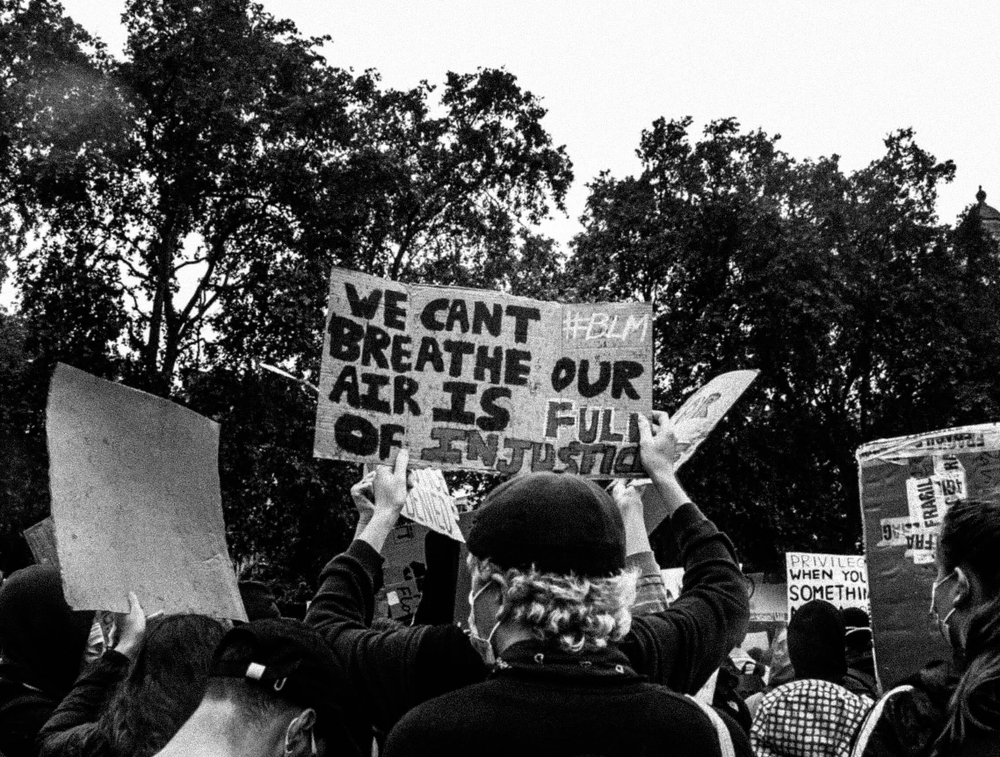 WE CANT #BLM
BREATHE OUR
AIR IS FULL
OF INJUSTICE
PRIVILEG
WHEN YOU
SOMETHIN
FRAGILE
FRA